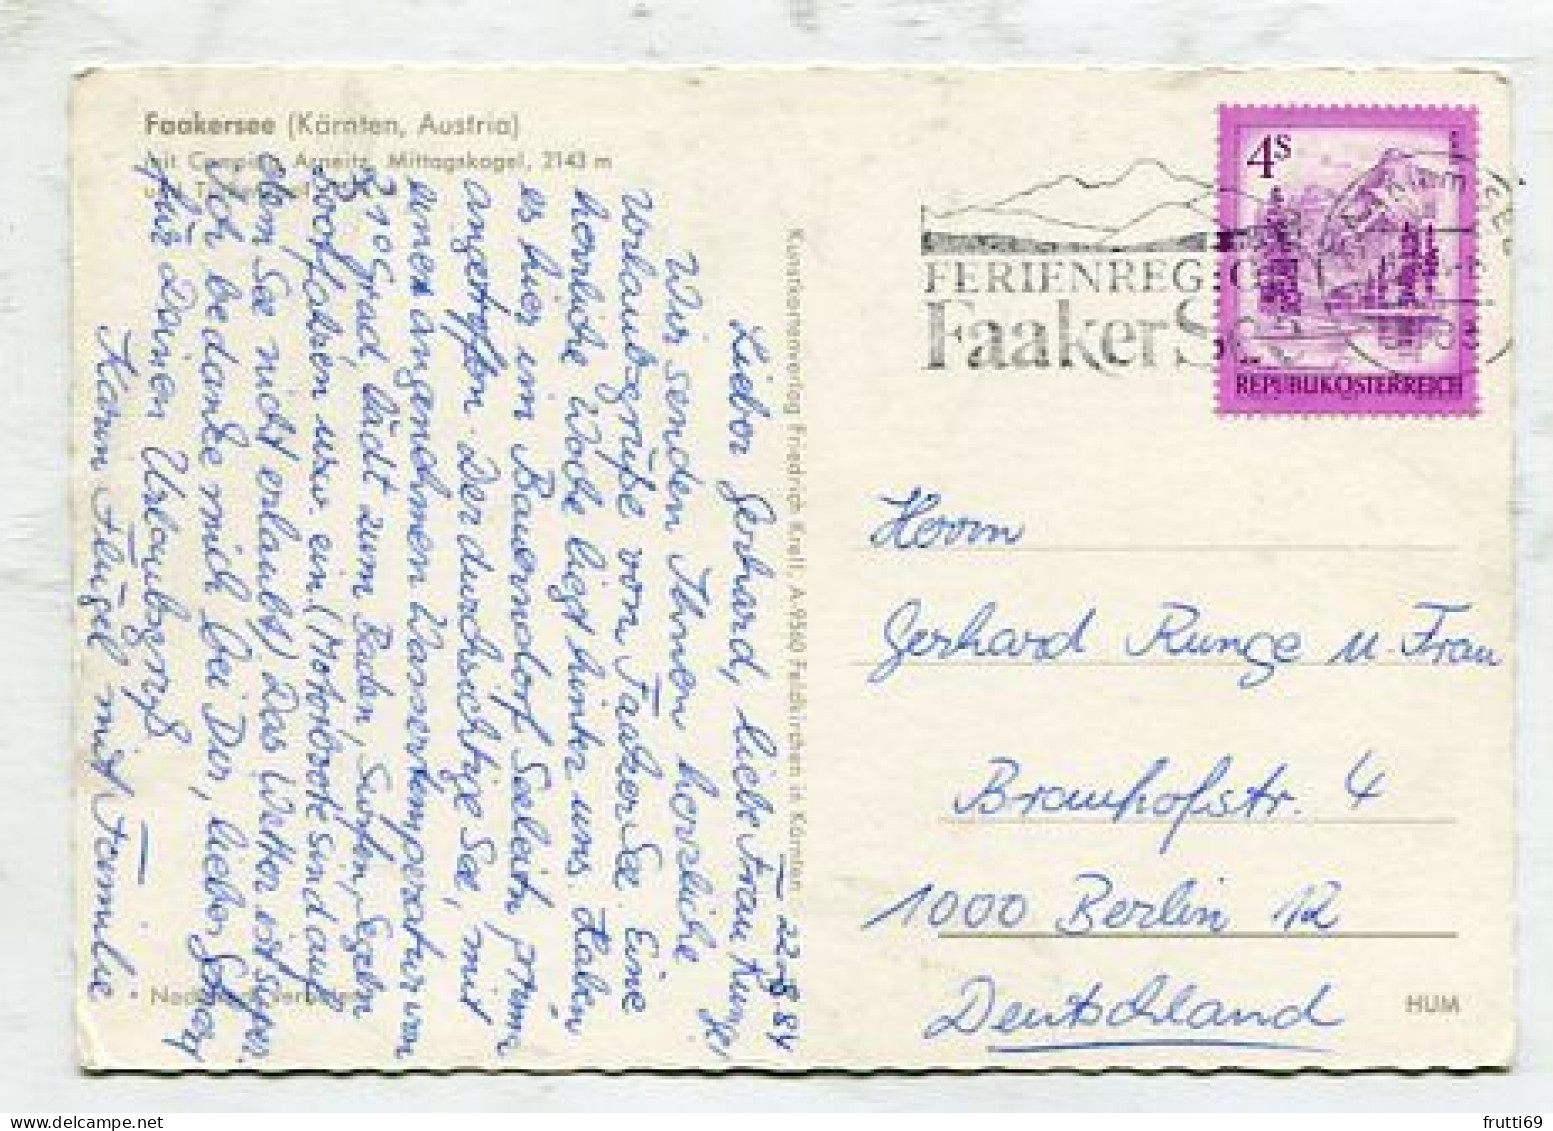 Faakersee (Kärnten, Austria)
mit Camping Arneitz, Mittagskogel, 2143 m
22.8.84
Lieber Gerhard, liebe Frau Runge
Wir senden Ihnen herzliche
Urlaubsgrüße vom Faaker See. Eine
herrliche Woche liegt hinter uns. Haben
es hier im Bauerndorf Seeleitn prima
angetroffen. Der durchsichtige See, mit
einer angenehmen Wassertemperatur von
21° Grad lädt zum Baden, Surfen, Segeln
Bootfahren usw. ein (Motorboote sind auf
dem See nicht erlaubt) Das Wetter ist super.
Ich bedanke mich bei Dir, lieber
für Deinen Urlaubsgruß
Karin Flügel mit Familie
Kunstlerinverlag Friedrich Kreit, A-9560 Feldkirchen in Kärnten
FERIENREGION
Faaker See
4S
REPUBLIK ÖSTERREICH
Herrn
Gerhard Runge u. Frau
Brauhofstr. 4
1000 Berlin 12
Deutschland
HUM
frutti69